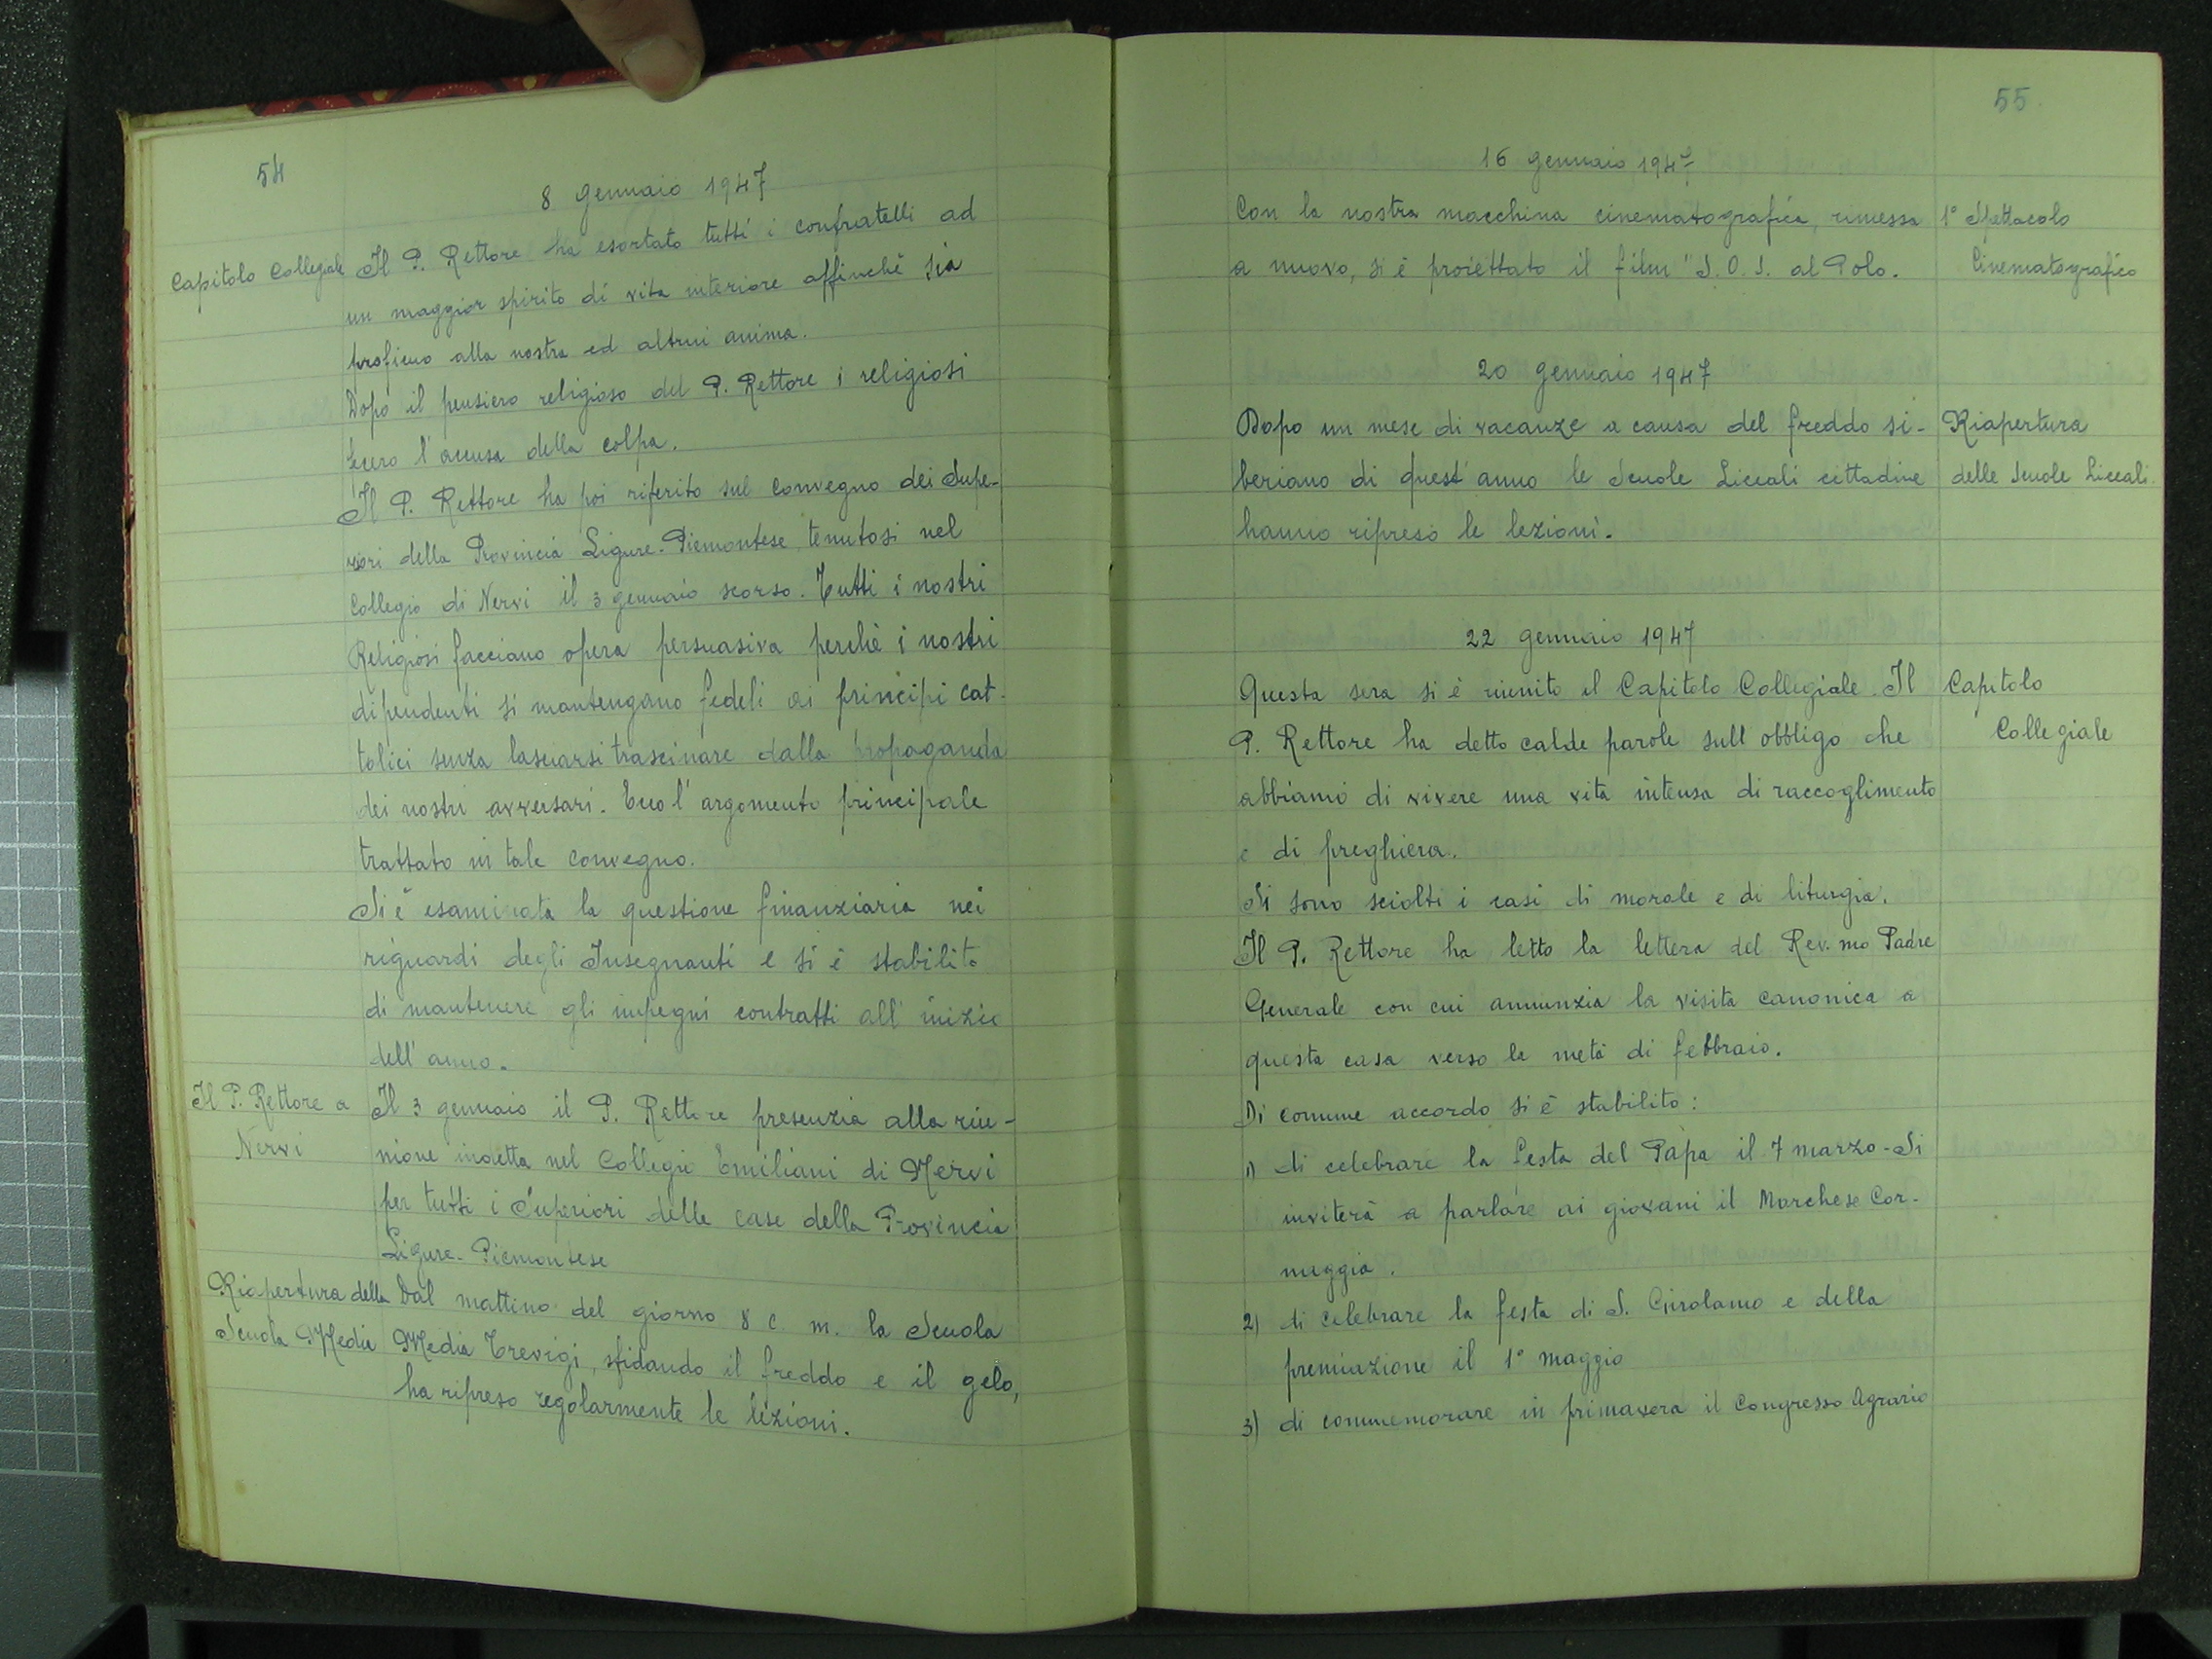 54
8 gennaio 1947
Capitolo Collegiale
Il P. Rettore ha esortato tutti i confratelli ad
un maggior spirito di vita interiore affinchè sia
proficuo alla nostra ed altrui anima.
Dopo il pensiero religioso del P. Rettore i religiosi
fecero l'accusa della colpa.
Il P. Rettore ha poi riferito sul convegno dei Supe-
riori della Provincia Ligure-Piemontese tenutosi nel
Collegio di Nervi il 3 gennaio scorso. Tutti i nostri
Religiosi facciano opera persuasiva perchè i nostri
dipendenti si mantengano fedeli ai principi cat-
tolici senza lasciarsi trascinare dalla propaganda
dei nostri avversari. Ecco l'argomento principale
trattato in tale convegno.
Si è esaminata la questione finanziaria nei
riguardi degli Insegnanti e si è stabilito
di mantenere gli impegni contratti all'inizio
dell'anno.
Il P. Rettore a
Nervi
Il 3 gennaio il P. Rettore presenzia alla riu-
nione indetta nel Collegio Emiliani di Nervi
per tutti i Superiori delle case della Provincia
Ligure-Piemontese
Riapertura della
Scuola Media
Dal mattino del giorno 8 c. m. la Scuola
Media Trevigi, sfidando il freddo e il gelo,
ha ripreso regolarmente le lezioni.
55
16 gennaio 1947
Con la nostra macchina cinematografica, rimessa
a nuovo, si è proiettato il film "S.O.S. al Polo.
1° Spettacolo
Cinematografico
20 gennaio 1947
Dopo un mese di vacanze a causa del freddo si-
beriano di quest'anno le Scuole Liceali cittadine
hanno ripreso le lezioni.
Riapertura
delle Scuole Liceali.
22 gennaio 1947
Questa sera si è riunito il Capitolo Collegiale. Il
P. Rettore ha detto calde parole sull'obbligo che
abbiamo di vivere una vita intensa di raccoglimento
e di preghiera.
Capitolo
Collegiale
Si sono sciolti i casi di morale e di liturgia.
Il P. Rettore ha letto la lettera del Rev.mo Padre
Generale con cui annunzia la visita canonica a
questa casa verso la metà di febbraio.
Di comune accordo si è stabilito:
1) di celebrare la festa del Papa il 7 marzo - Si
inviterà a parlare ai giovani il Marchese Cor-
naggia.
2) di celebrare la festa di S. Girolamo e della
premiazione il 1° maggio
3) di commemorare in primavera il Congresso Agrario